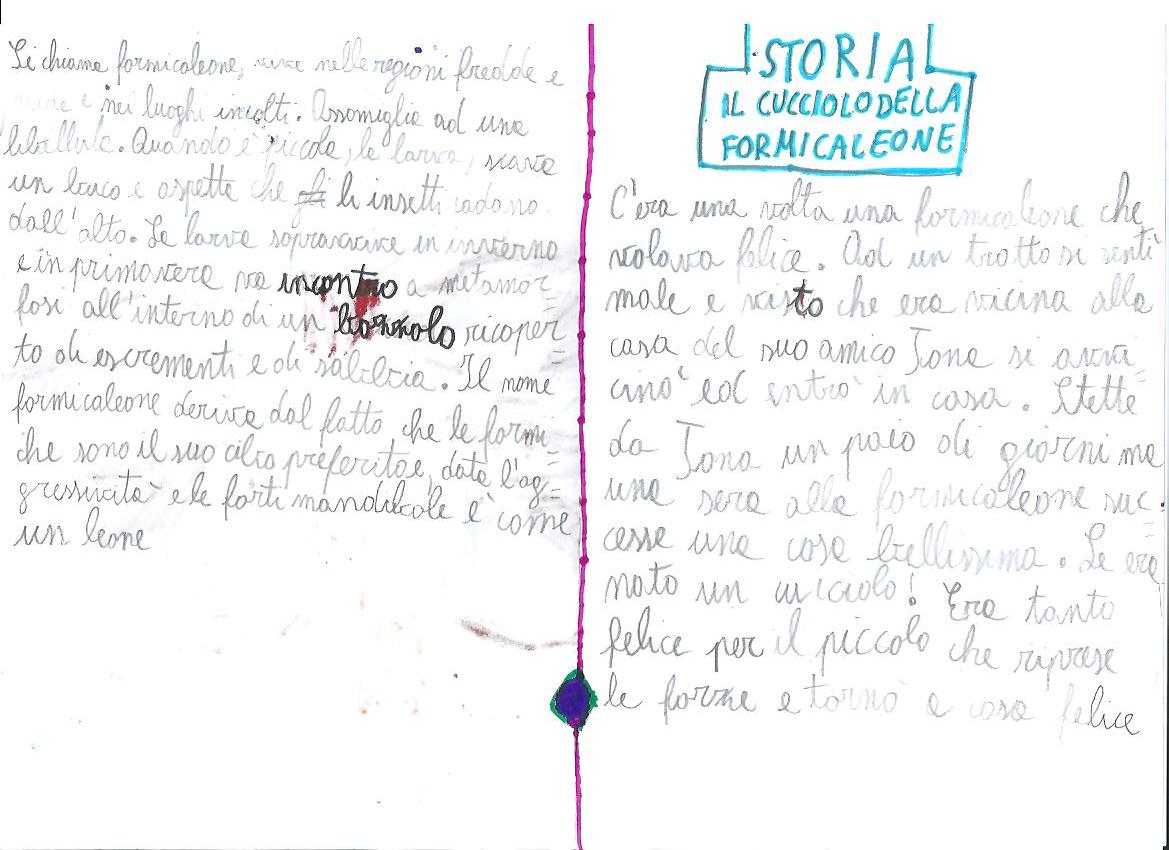 Si chiama formicaleone, vive nelle regioni fredde e
e nei luoghi incolti. Assomiglia ad una
libellula. Quando è piccola, la larva, scava
un buco e aspetta che gli li insetti cadano
dall'alto. La larva sopravvive in inverno
e in primavera va incontro a metamor=
fosi all'interno di un bozzolo ricoper=
to di escrementi e di sabbia. Il nome
formicaleone deriva dal fatto che le formi=
che sono il suo cibo preferito e, data l'ag=
gressività e le forti mandibole è come
un leone
STORIA
IL CUCCIOLO DELLA
FORMICALEONE
C'era una volta una formicaleone che
volava felice. Ad un tratto si sentì
male e visto che era vicina alla
casa del suo amico Jona si avvi=
cinò ed entrò in casa. Stette
da Jona un paio di giorni ma
una sera alla formicaleone suc=
cesse una cosa bellissima. Le era
nato un cucciolo! Era tanto
felice per il piccolo che riprese
le forze e tornò a casa felice